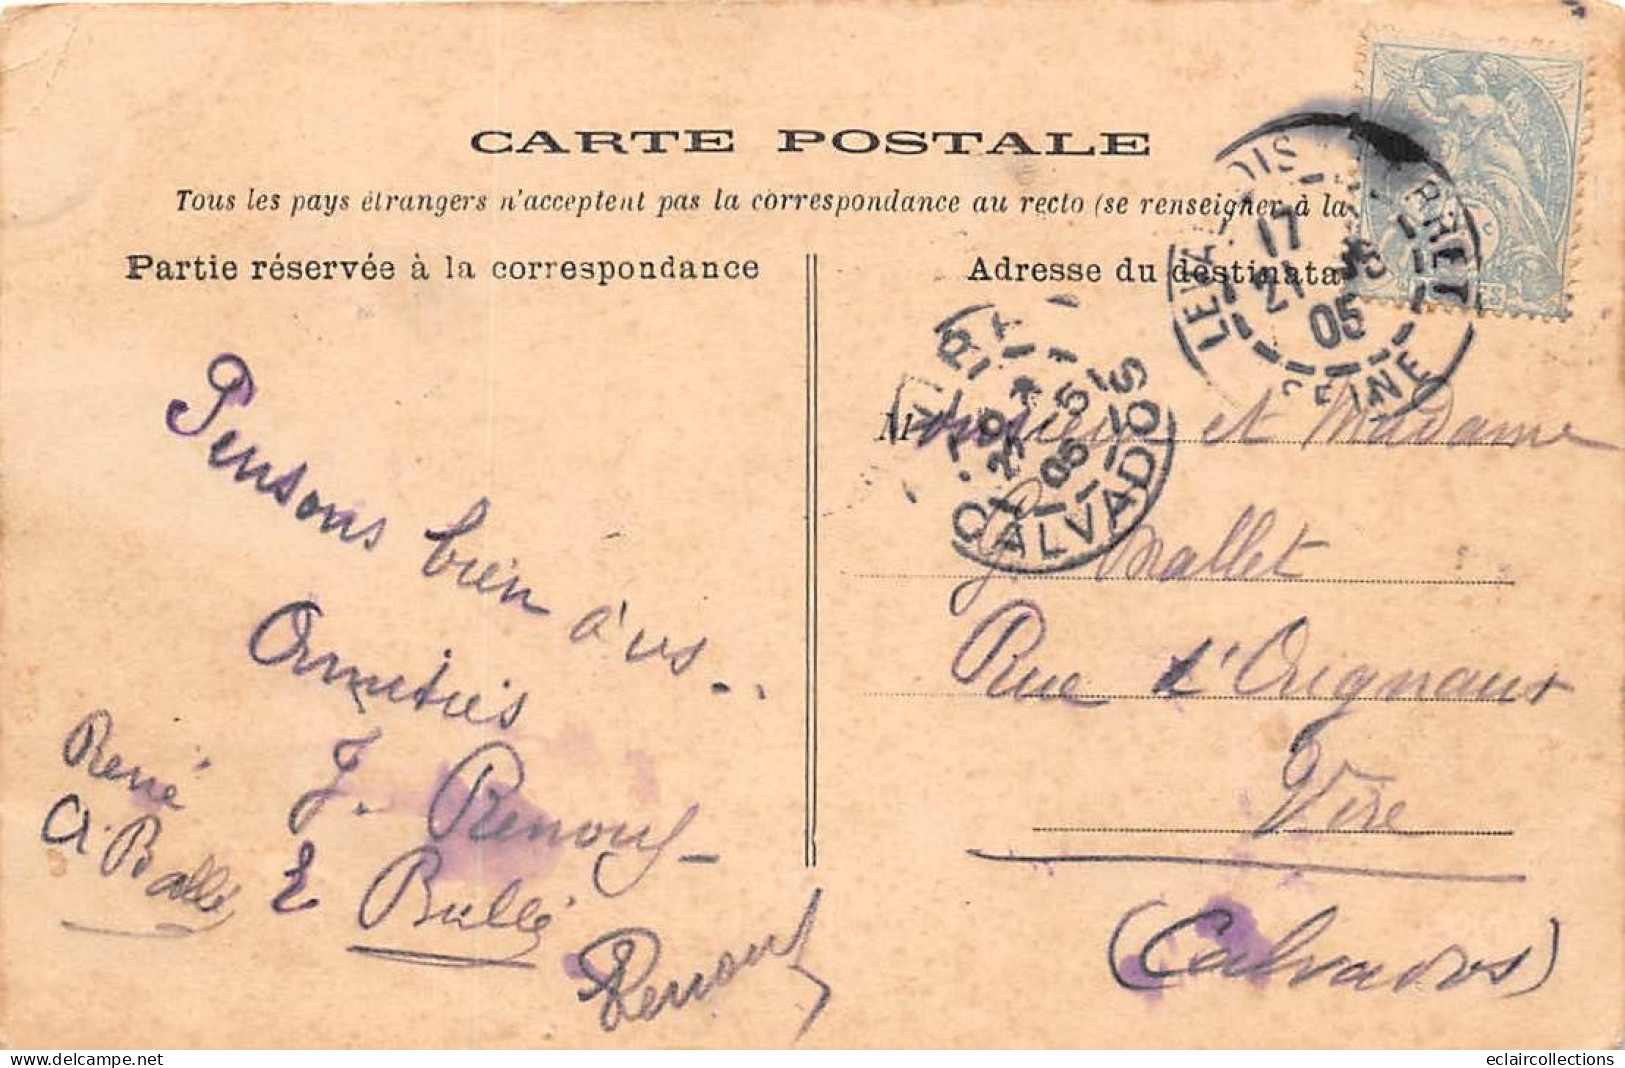 CARTE POSTALE
Tous les pays étrangers n'acceptent pas la correspondance au recto (se renseigner à la
Partie réservée à la correspondance
Pensons bien à vs..
Amitiés
J. Renouf
René
A. Ballé
E Ballé
Renouf
Adresse du destinata
Monsieur et Madame
Mallet
Rue d'Orignaux
Vire
(Calvados)
LEVALLOIS PERRET
17
21
05
SEINE
VIRE
22
05
CALVADOS
eclaircollections